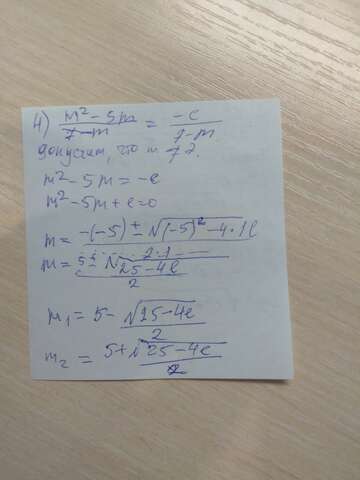 4) (m² - 5m)/(7 - m) = (-e)/(7 - m)
допустим, что m ≠ 7.
m² - 5m = -e
m² - 5m + e = 0
m = (-(-5) ± √((-5)² - 4·1e))/(2·1)
m = (5 ± √(25 - 4e))/2
m₁ = 5 - √(25 - 4e)/2
m₂ = 5 + √(25 - 4e)/2